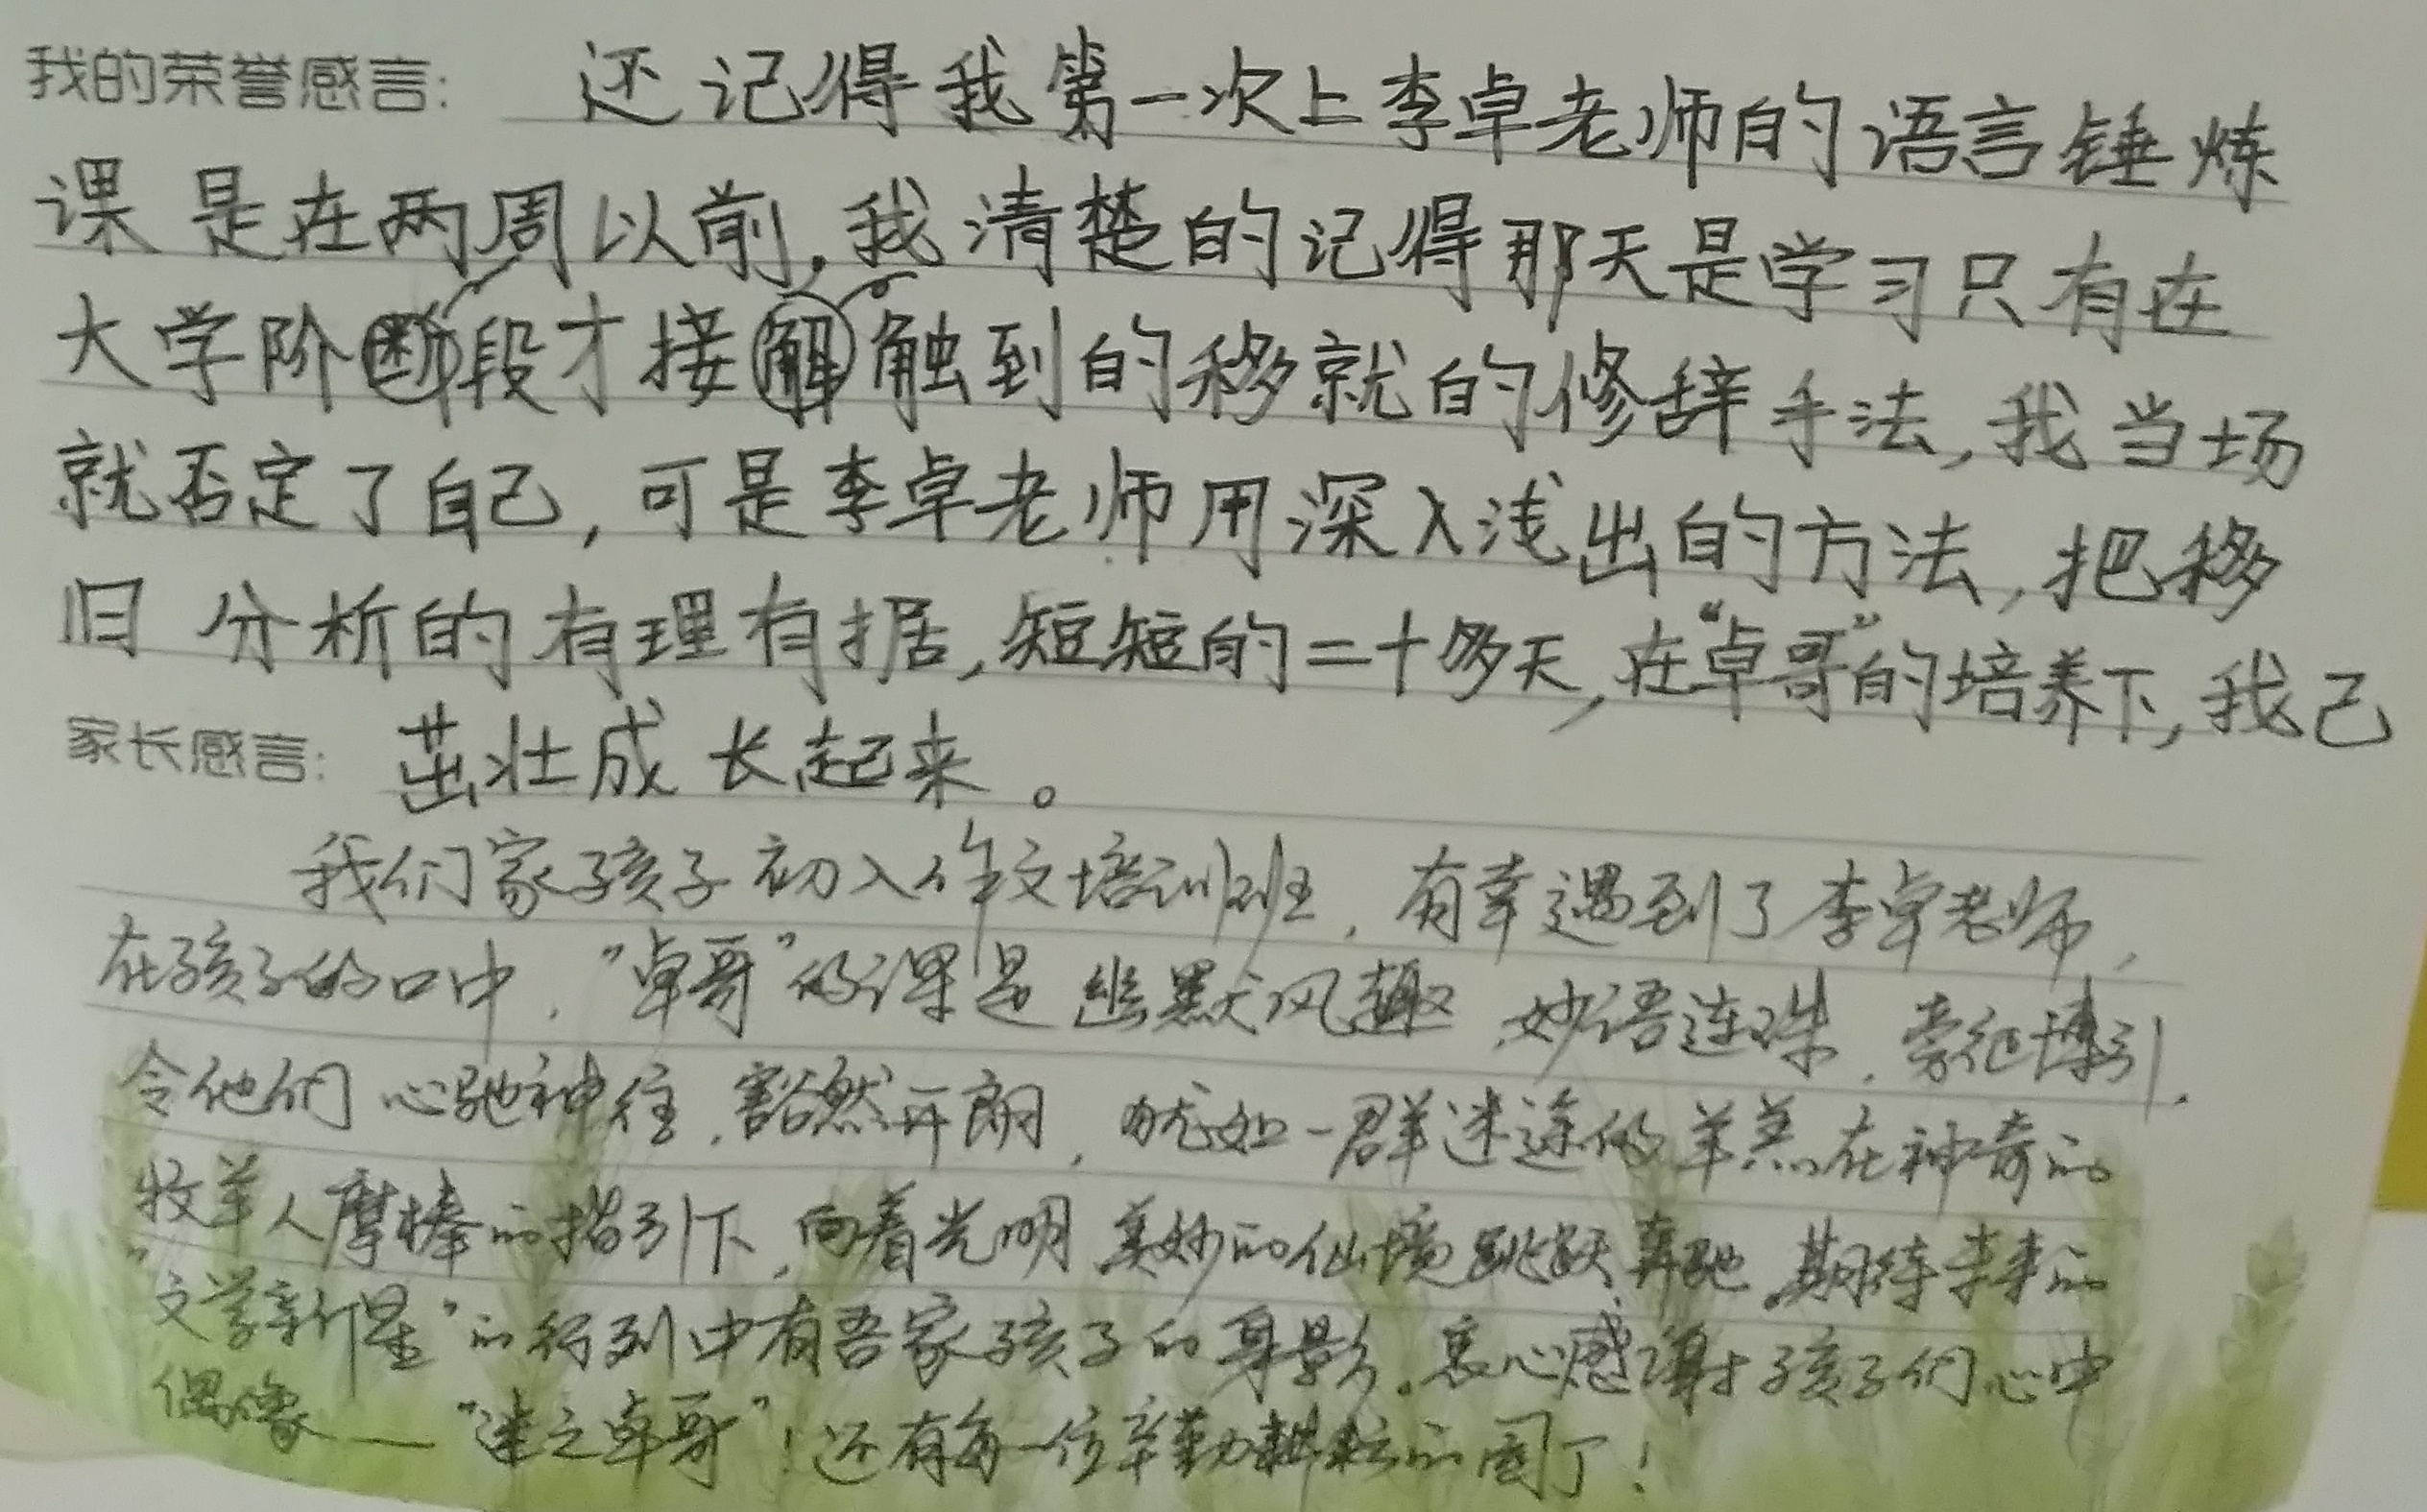 我的荣誉感言: 还记得我第一次上李卓老师的语言锤炼
课是在两周以前,我清楚的记得那天是学习只有在
大学阶断段才接解触到的移就的修辞手法,我当场
就否定了自己,可是李卓老师用深入浅出的方法,把移
旧分析的有理有据,短短的二十多天,在“卓哥”的培养下,我己
家长感言: 茁壮成长起来。
我们家孩子初入作文培训班,有幸遇到了李卓老师,
在孩子的口中,“卓哥”的课是幽默风趣,妙语连珠,旁征博引,
令他们心驰神往,豁然开朗,犹如一群迷途的羊羔在神奇的
牧羊人摩棒的指引下,向着光明、美妙的仙境跳跃、奔驰。期待未来的
“文学新星”的行列中有吾家孩子的身影。衷心感谢孩子们心中
偶像——“迷之卓哥”!还有每一位辛勤耕耘的园丁!